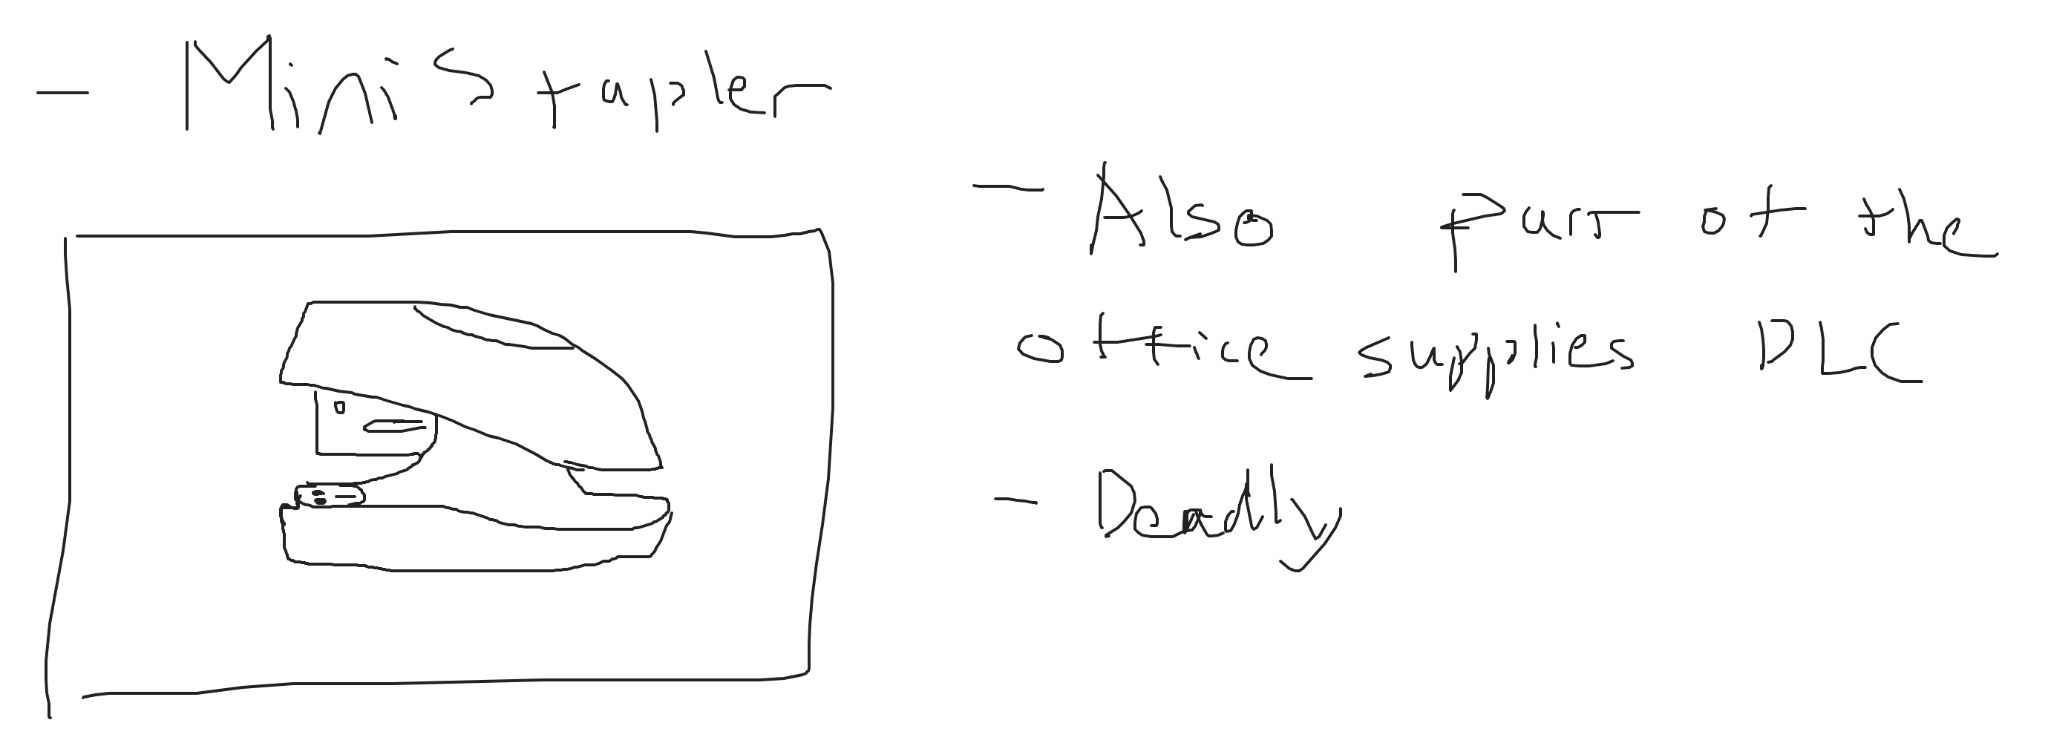 - Mini Stapler
- Also part of the
office supplies DLC
- Deadly